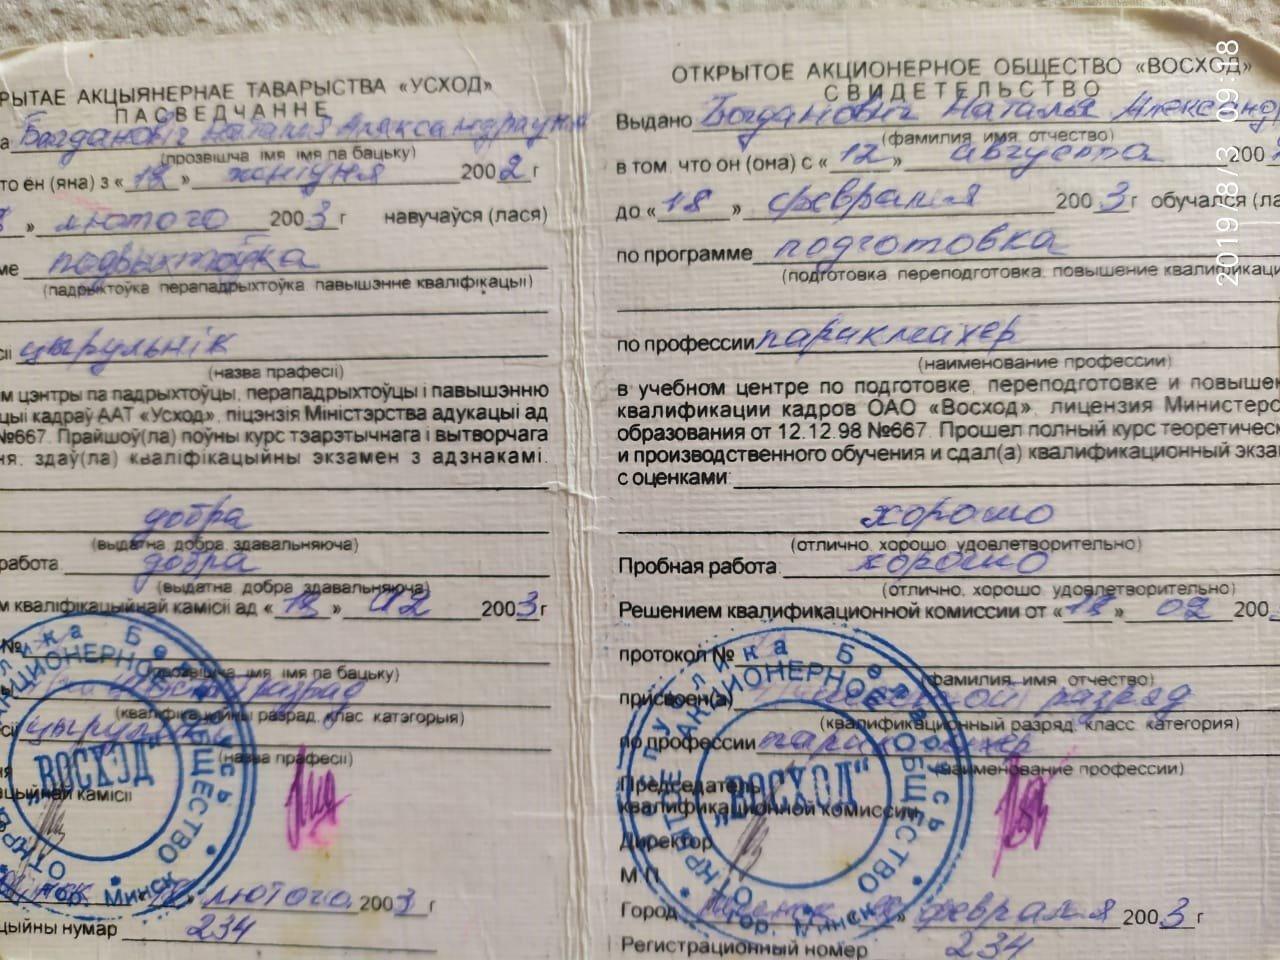 РЫТАЕ АКЦЫЯНЕРНАЕ ТАВАРЫСТВА «УСХОД»
ПАСВЕДЧАННЕ
а Багдановіч Наталія Аляксандраўна
(прозвішча імя імя па бацьку)
то ён (яна) з «12» жніўня 2002г
» лютого 2003г навучаўся (лася)
ме подрыхтоўка
(падрыхтоўка перападрыхтоўка павышэнне кваліфікацыі)
сіі цырульнік
(назва прафесіі)
м цэнтры па падрыхтоўцы, перападрыхтоўцы і павышэнню
цыі кадраў ААТ «Усход», ліцэнзія Міністэрства адукацыі ад
№667. Прайшоў(ла) поўны курс тэарэтычнага і вытворчага
ня, здаў(ла) кваліфікацыйны экзамен з адзнакамі.
добра
(выдатна добра здавальняюча)
работа добра
(выдатна добра здавальняюча)
м кваліфікацыйнай камісіі ад «18» 02 2003г
№
(прозвішча імя імя па бацьку)
разрад
(кваліфікацыйны разрад, клас катэгорыя)
сіі цырульнік
(назва прафесіі)
ня
ацыйнай камісіі
лютого 2003г
цыйны нумар 234
ОТКРЫТОЕ АКЦИОНЕРНОЕ ОБЩЕСТВО «ВОСХОД»
СВИДЕТЕЛЬСТВО
Выдано Богданович Наталья Александр
(фамилия имя отчество)
в том что он (она) с «12» августа 200
до «18» февраля 2003г обучался (ла
по программе подготовка
(подготовка переподготовка повышение квалификаци
по профессии парикмахер
(наименование профессии)
в учебном центре по подготовке, переподготовке и повышен
квалификации кадров ОАО «Восход», лицензия Министерс
образования от 12.12.98 №667. Прошел полный курс теоретическ
и производственного обучения и сдал(а) квалификационный экза
с оценками:
хорошо
(отлично хорошо удовлетворительно)
Пробная работа: хорошо
(отлично, хорошо удовлетворительно)
Решением квалификационной комиссии от «18» 02 200
протокол №
(фамилия, имя, отчество)
присвоен(а) разряд
(квалификационный разряд, класс категория)
по профессии парикмахер
(наименование профессии)
Председатель
квалификационной комиссии
Директор
М П
Город Минск февраля 2003г
Регистрационный номер 234
Республика Беларусь гор. Минск
ОТКРЫТОЕ АКЦИОНЕРНОЕ ОБЩЕСТВО
"ВОСХОД"
2019/8/3 09:18